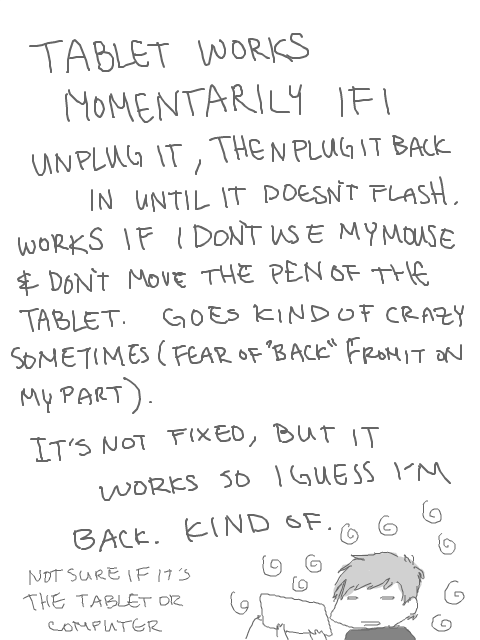 TABLET WORKS
MOMENTARILY IF I
UNPLUG IT, THEN PLUG IT BACK
IN UNTIL IT DOESN'T FLASH.
WORKS IF I DON'T USE MY MOUSE
& DON'T MOVE THE PEN OF THE
TABLET. GOES KIND OF CRAZY
SOMETIMES (FEAR OF "BACK" FROM IT ON
MY PART).
IT'S NOT FIXED, BUT IT
WORKS SO I GUESS I'M
BACK. KIND OF.
NOT SURE IF IT'S
THE TABLET OR
COMPUTER